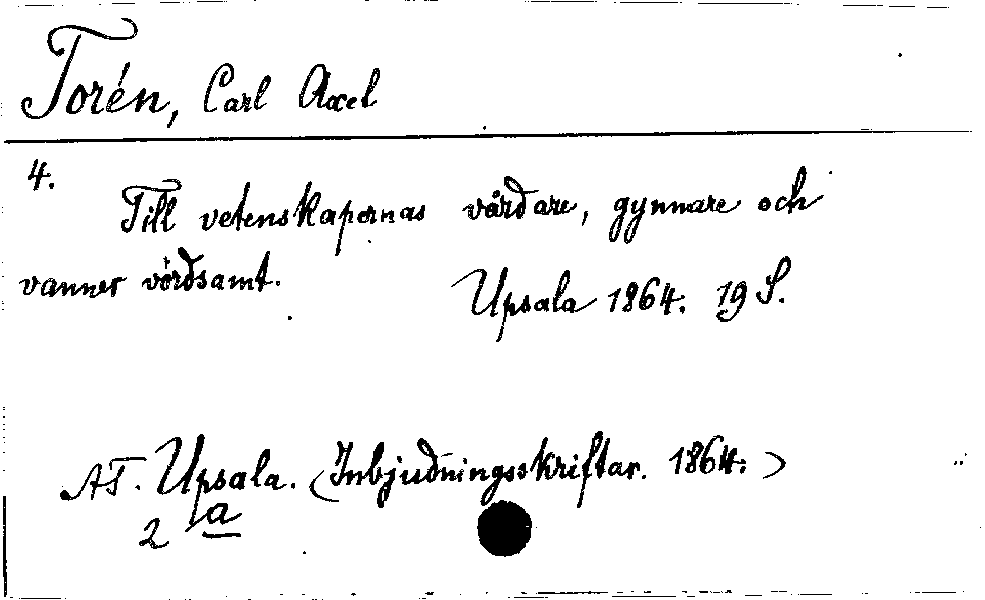 Torén, Carl Axel
4.
Till vetenskapernas vårdare, gynnare och
vanner vördsamt.
Upsala 1864. 19 S.
AT. Upsala. (Inbjudningsskriftar. 1864.)
2 a